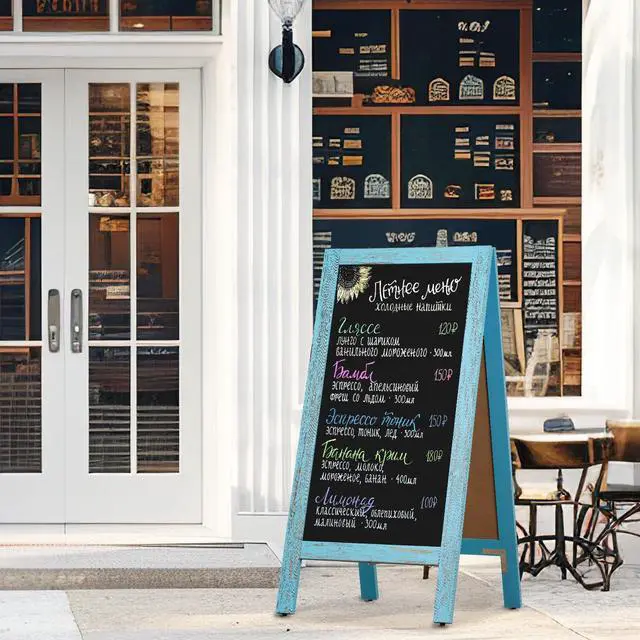 Летнее меню
холодные напитки
Глясе 120₽
лунго с шариком
ванильного мороженого · 300мл
Бамбл 150₽
эспрессо, апельсиновый
фреш со льдом · 300мл
Эспрессо тоник 150₽
эспрессо, тоник, лед · 300мл
Банана крим 180₽
эспрессо, молоко,
мороженое, банан · 400мл
Лимонад 100₽
классический, облепиховый,
малиновый · 300мл